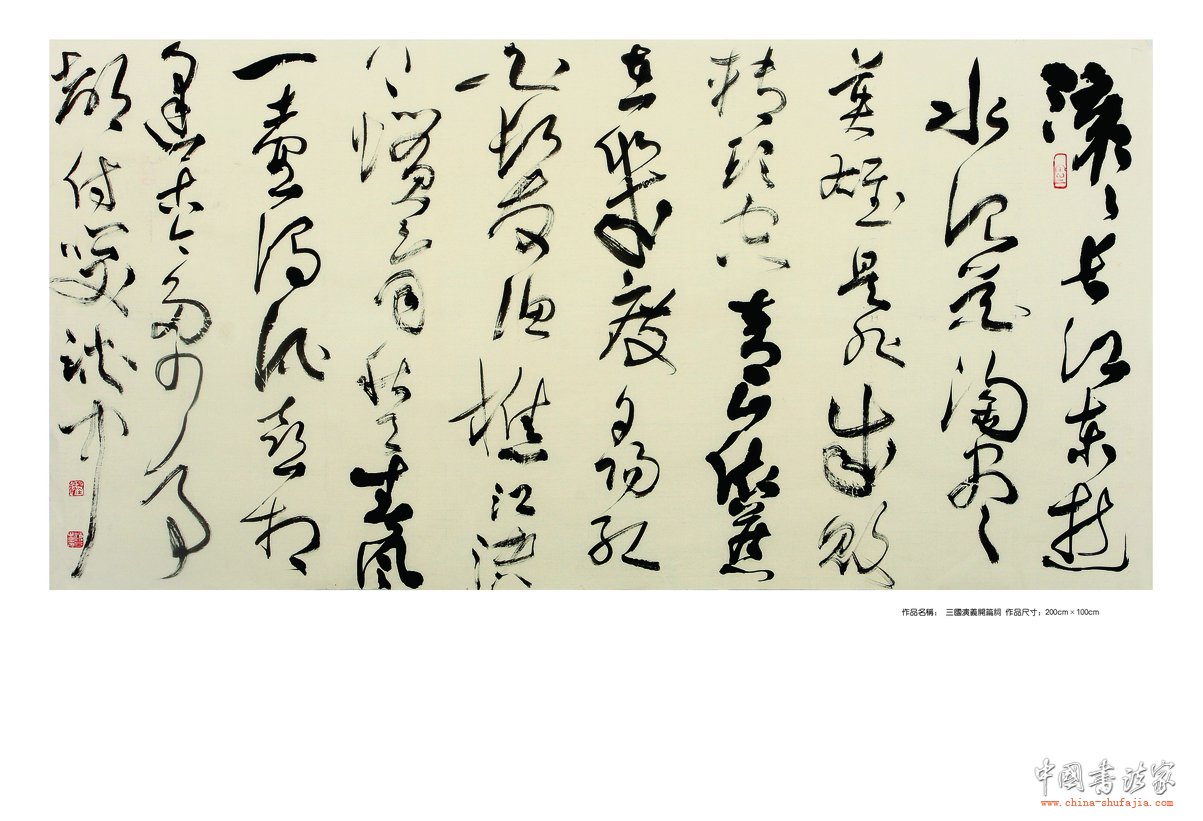 滚滚長江東逝
水浪花淘盡
英雄是非成敗
轉頭空青山依舊
在幾度夕陽紅
白髮漁樵江渚
上慣看秋月春風
一壺濁酒喜相
逢古今多少事
都付笑談中
作品名稱： 三國演義開篇詞 作品尺寸：200cm×100cm
中国书法家
www.china-shufajia.com